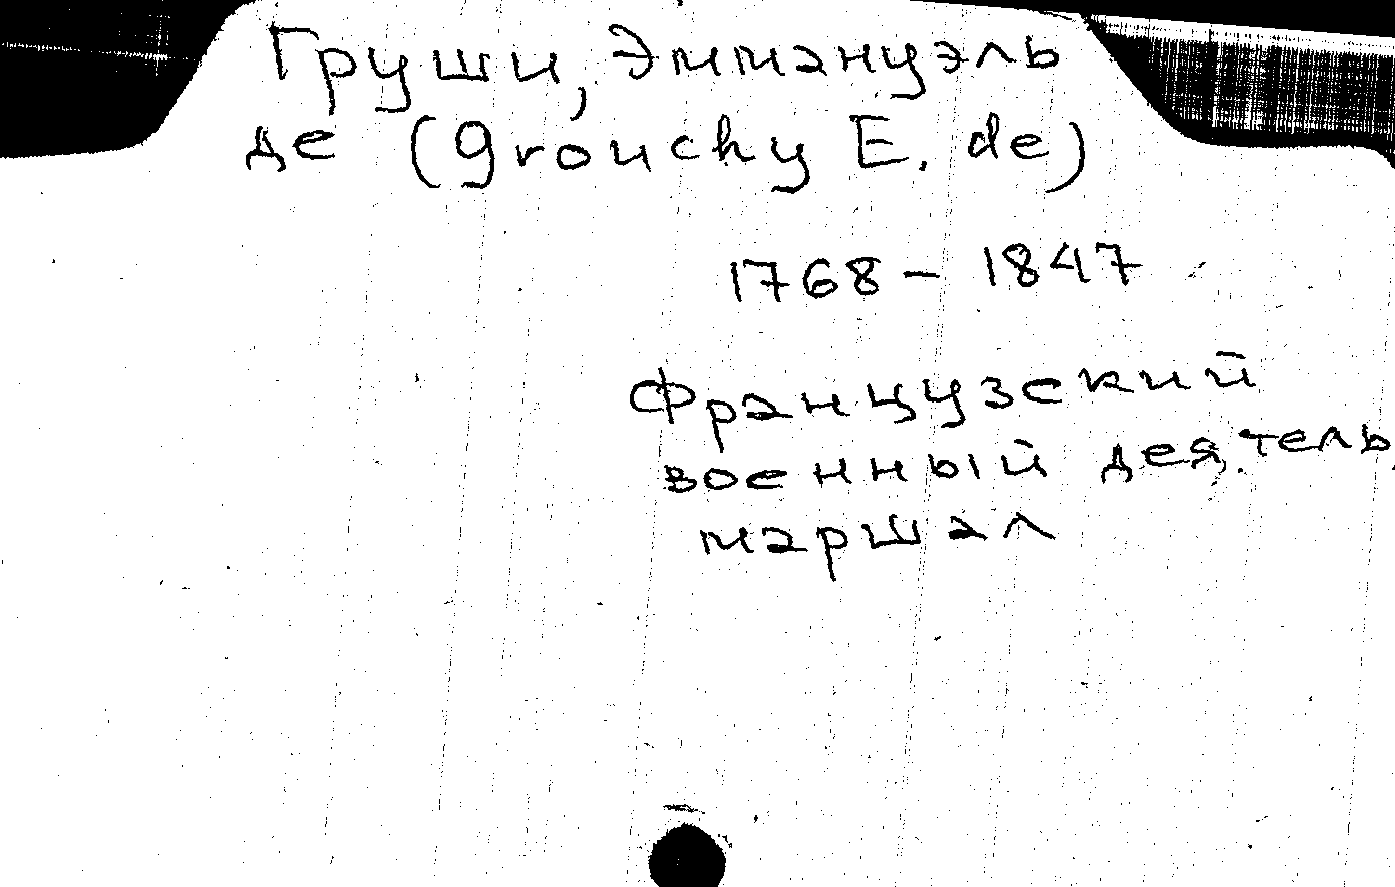 Груши, Эммануэль
де (Grouchy E. de)
1768 – 1847
Французский
военный деятель
маршал